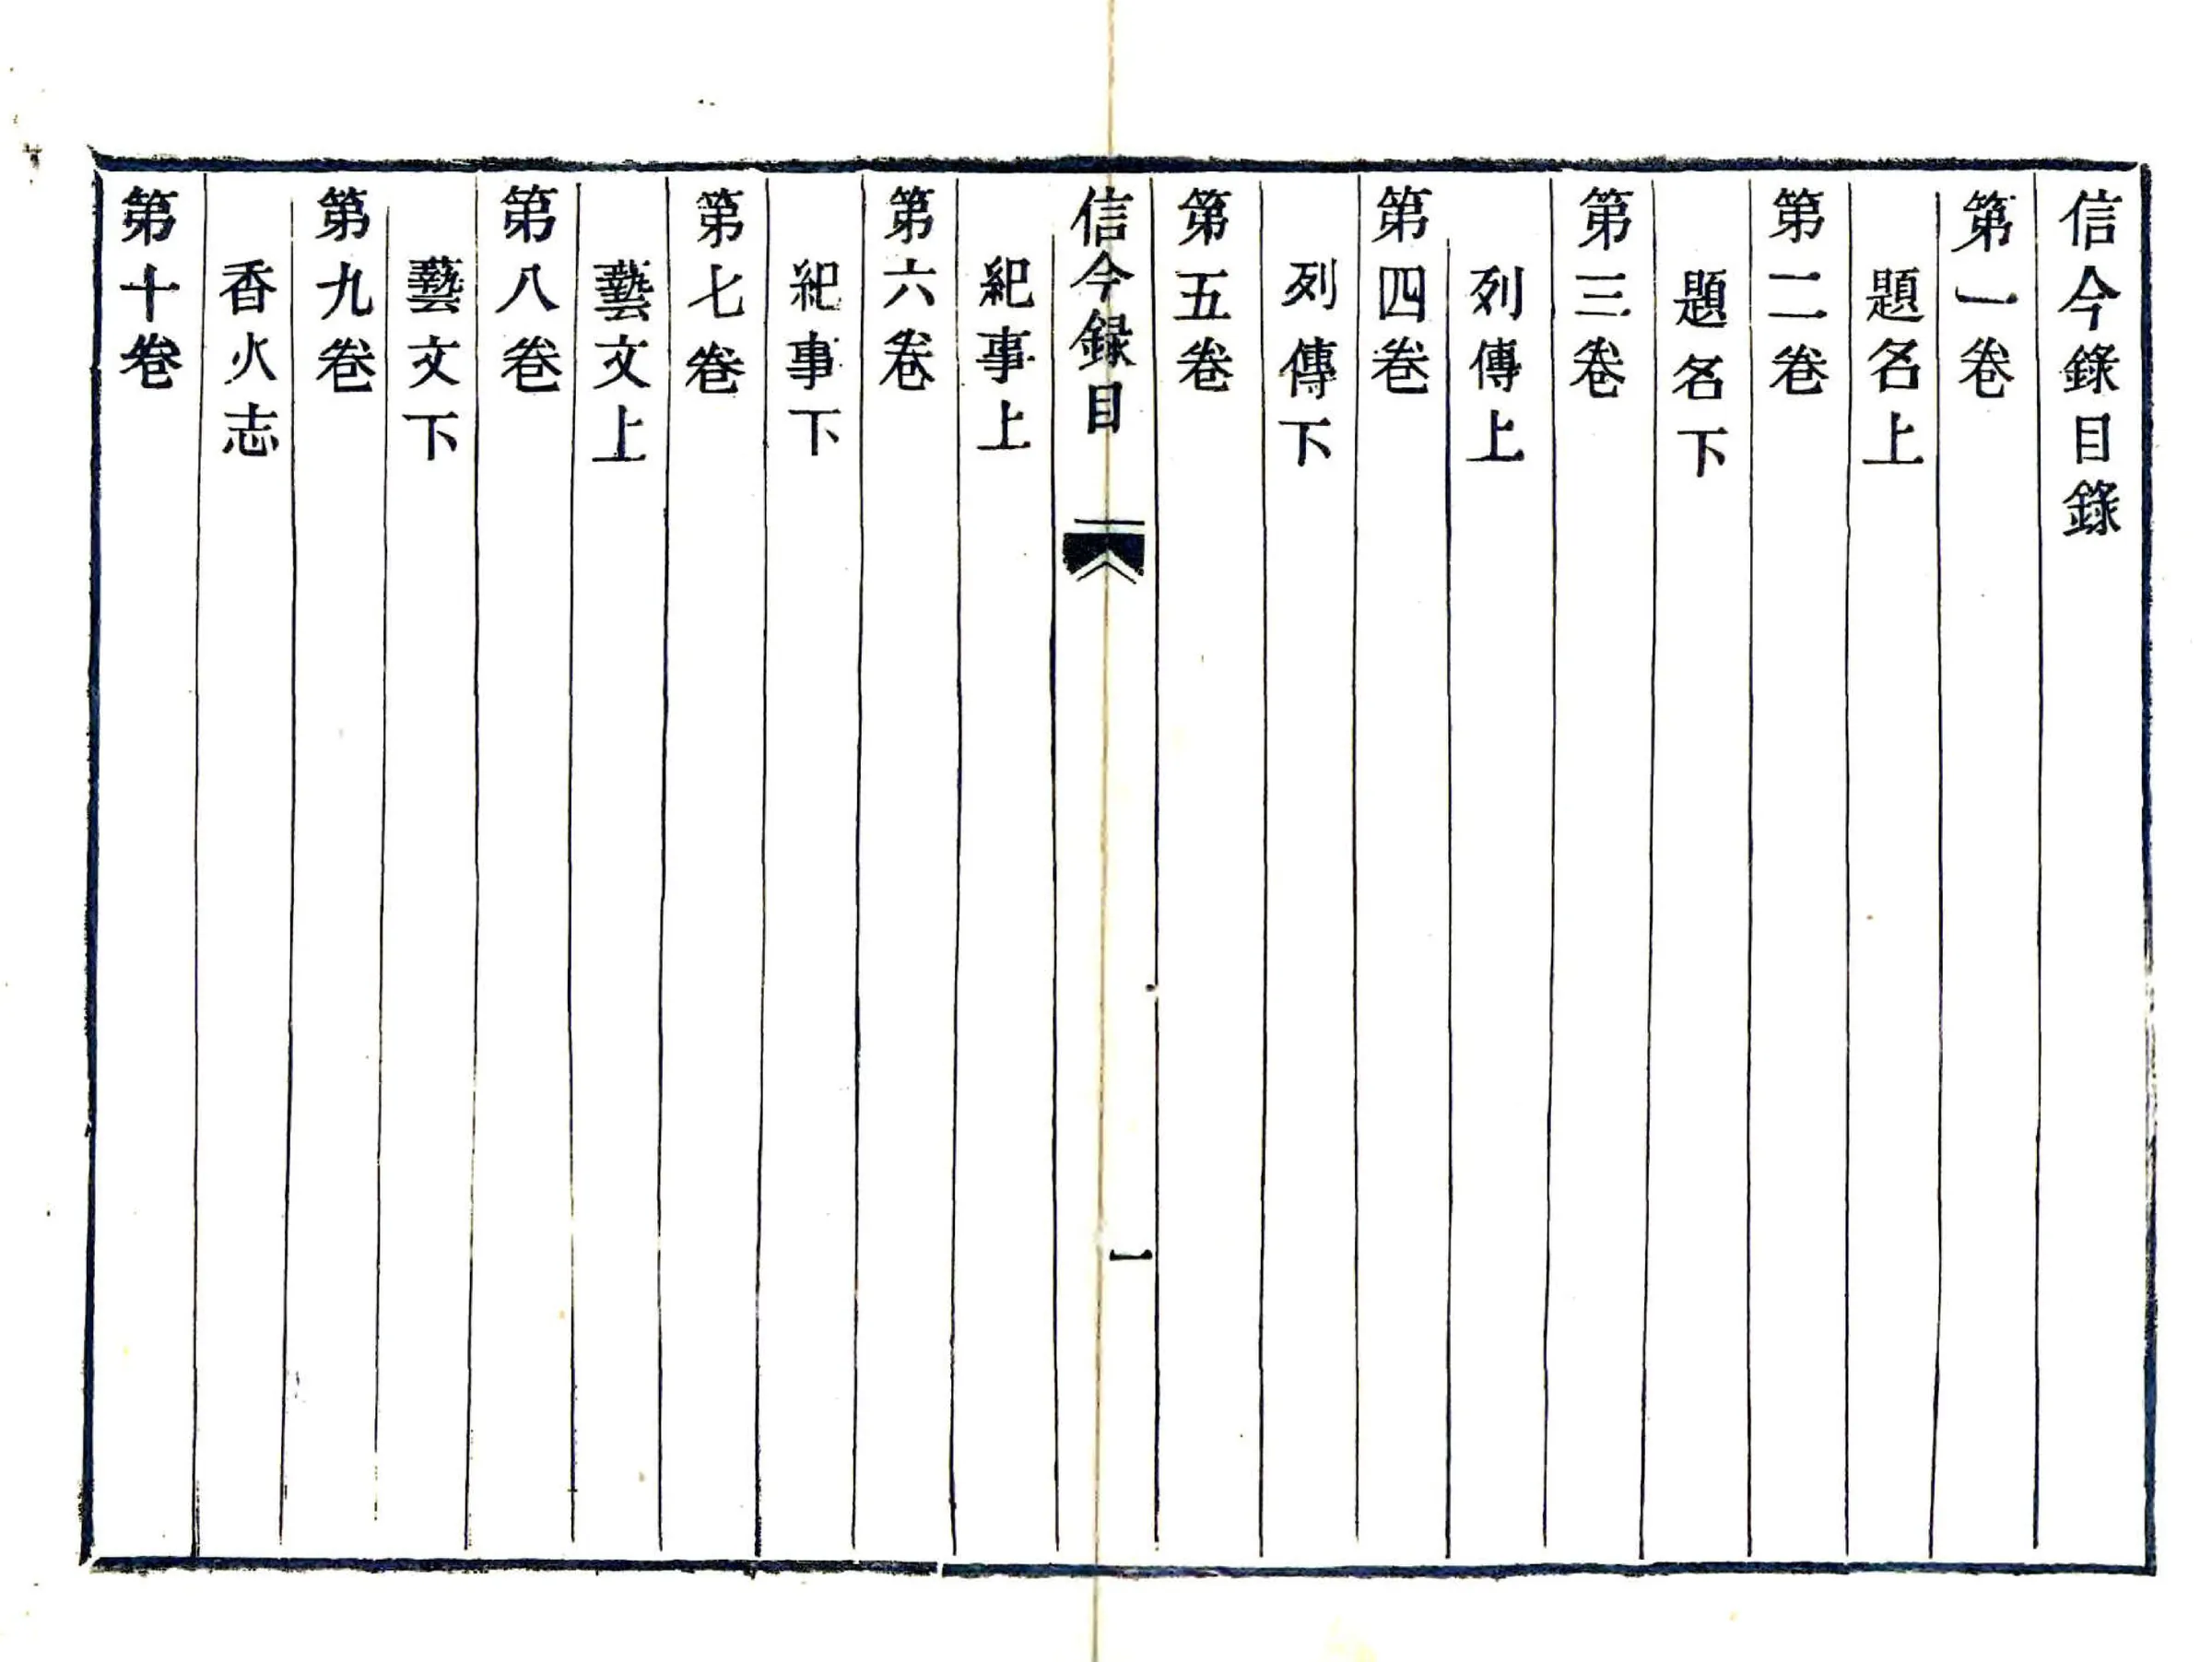 信今錄目錄
第一卷
題名上
第二卷
題名下
第三卷
列傳上
第四卷
列傳下
第五卷
信今録目
一
紀事上
第六卷
紀事下
第七卷
藝文上
第八卷
藝文下
第九卷
香火志
第十卷